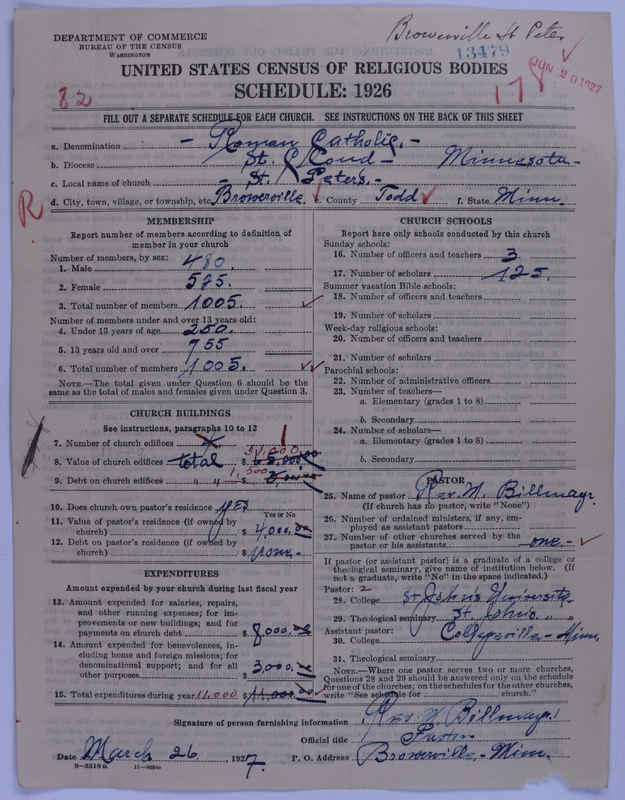 Browerville St Peter
DEPARTMENT OF COMMERCE
BUREAU OF THE CENSUS
WASHINGTON
13479
JUN 20 1927
UNITED STATES CENSUS OF RELIGIOUS BODIES
SCHEDULE: 1926
82
FILL OUT A SEPARATE SCHEDULE FOR EACH CHURCH. SEE INSTRUCTIONS ON THE BACK OF THIS SHEET
a. Denomination - Roman Catholic. -
b. Diocese St. Cloud - Minnesota -
c. Local name of church - St. Peters. -
d. City, town, village, or township, etc. Browerville. e. County Todd f. State Minn.
R
MEMBERSHIP
Report number of members according to definition of
member in your church
Number of members, by sex:
1. Male 480
2. Female 525
3. Total number of members 1005.
Number of members under and over 13 years old:
4. Under 13 years of age 250.
5. 13 years old and over 755
6. Total number of members 1005.
NOTE.—The total given under Question 6 should be the
same as the total of males and females given under Question 3.
CHURCH BUILDINGS
See instructions, paragraphs 10 to 12
7. Number of church edifices 1
8. Value of church edifices total $
9. Debt on church edifices " " $
10. Does church own pastor's residence yes
Yes or No
11. Value of pastor's residence (if owned by
church) $ 4,000.00
12. Debt on pastor's residence (if owned by
church) $ none -
EXPENDITURES
Amount expended by your church during last fiscal year
13. Amount expended for salaries, repairs,
and other running expenses; for im-
provements or new buildings; and for
payments on church debt $ 8,000.00
14. Amount expended for benevolences, in-
cluding home and foreign missions; for
denominational support; and for all
other purposes $ 3,000.00
15. Total expenditures during year 11,000 $ 11,000.00
CHURCH SCHOOLS
Report here only schools conducted by this church
Sunday schools:
16. Number of officers and teachers 3
17. Number of scholars 125.
Summer vacation Bible schools:
18. Number of officers and teachers
19. Number of scholars
Week-day religious schools:
20. Number of officers and teachers
21. Number of scholars
Parochial schools:
22. Number of administrative officers
23. Number of teachers—
a. Elementary (grades 1 to 8)
b. Secondary
24. Number of scholars—
a. Elementary (grades 1 to 8)
b. Secondary
PASTOR
25. Name of pastor Rev. W. Billmayr.
(If church has no pastor, write "None")
26. Number of ordained ministers, if any, em-
ployed as assistant pastors
27. Number of other churches served by the
pastor or his assistants one -
If pastor (or assistant pastor) is a graduate of a college or
theological seminary, give name of institution below. (If
not a graduate, write "No" in the space indicated.)
Pastor: 2
28. College St Johns University
29. Theological seminary St. Johns " "
Assistant pastor: Collegeville - Minn.
30. College
31. Theological seminary
NOTE.—Where one pastor serves two or more churches,
Questions 28 and 29 should be answered only on the schedule
for one of the churches; on the schedules for the other churches,
write "See schedule for church."
Signature of person furnishing information Rev W. Billmayr
Official title Pastor
Date March 26, 1927. P. O. Address Browerville - Minn.
8—5518 a 11—9054